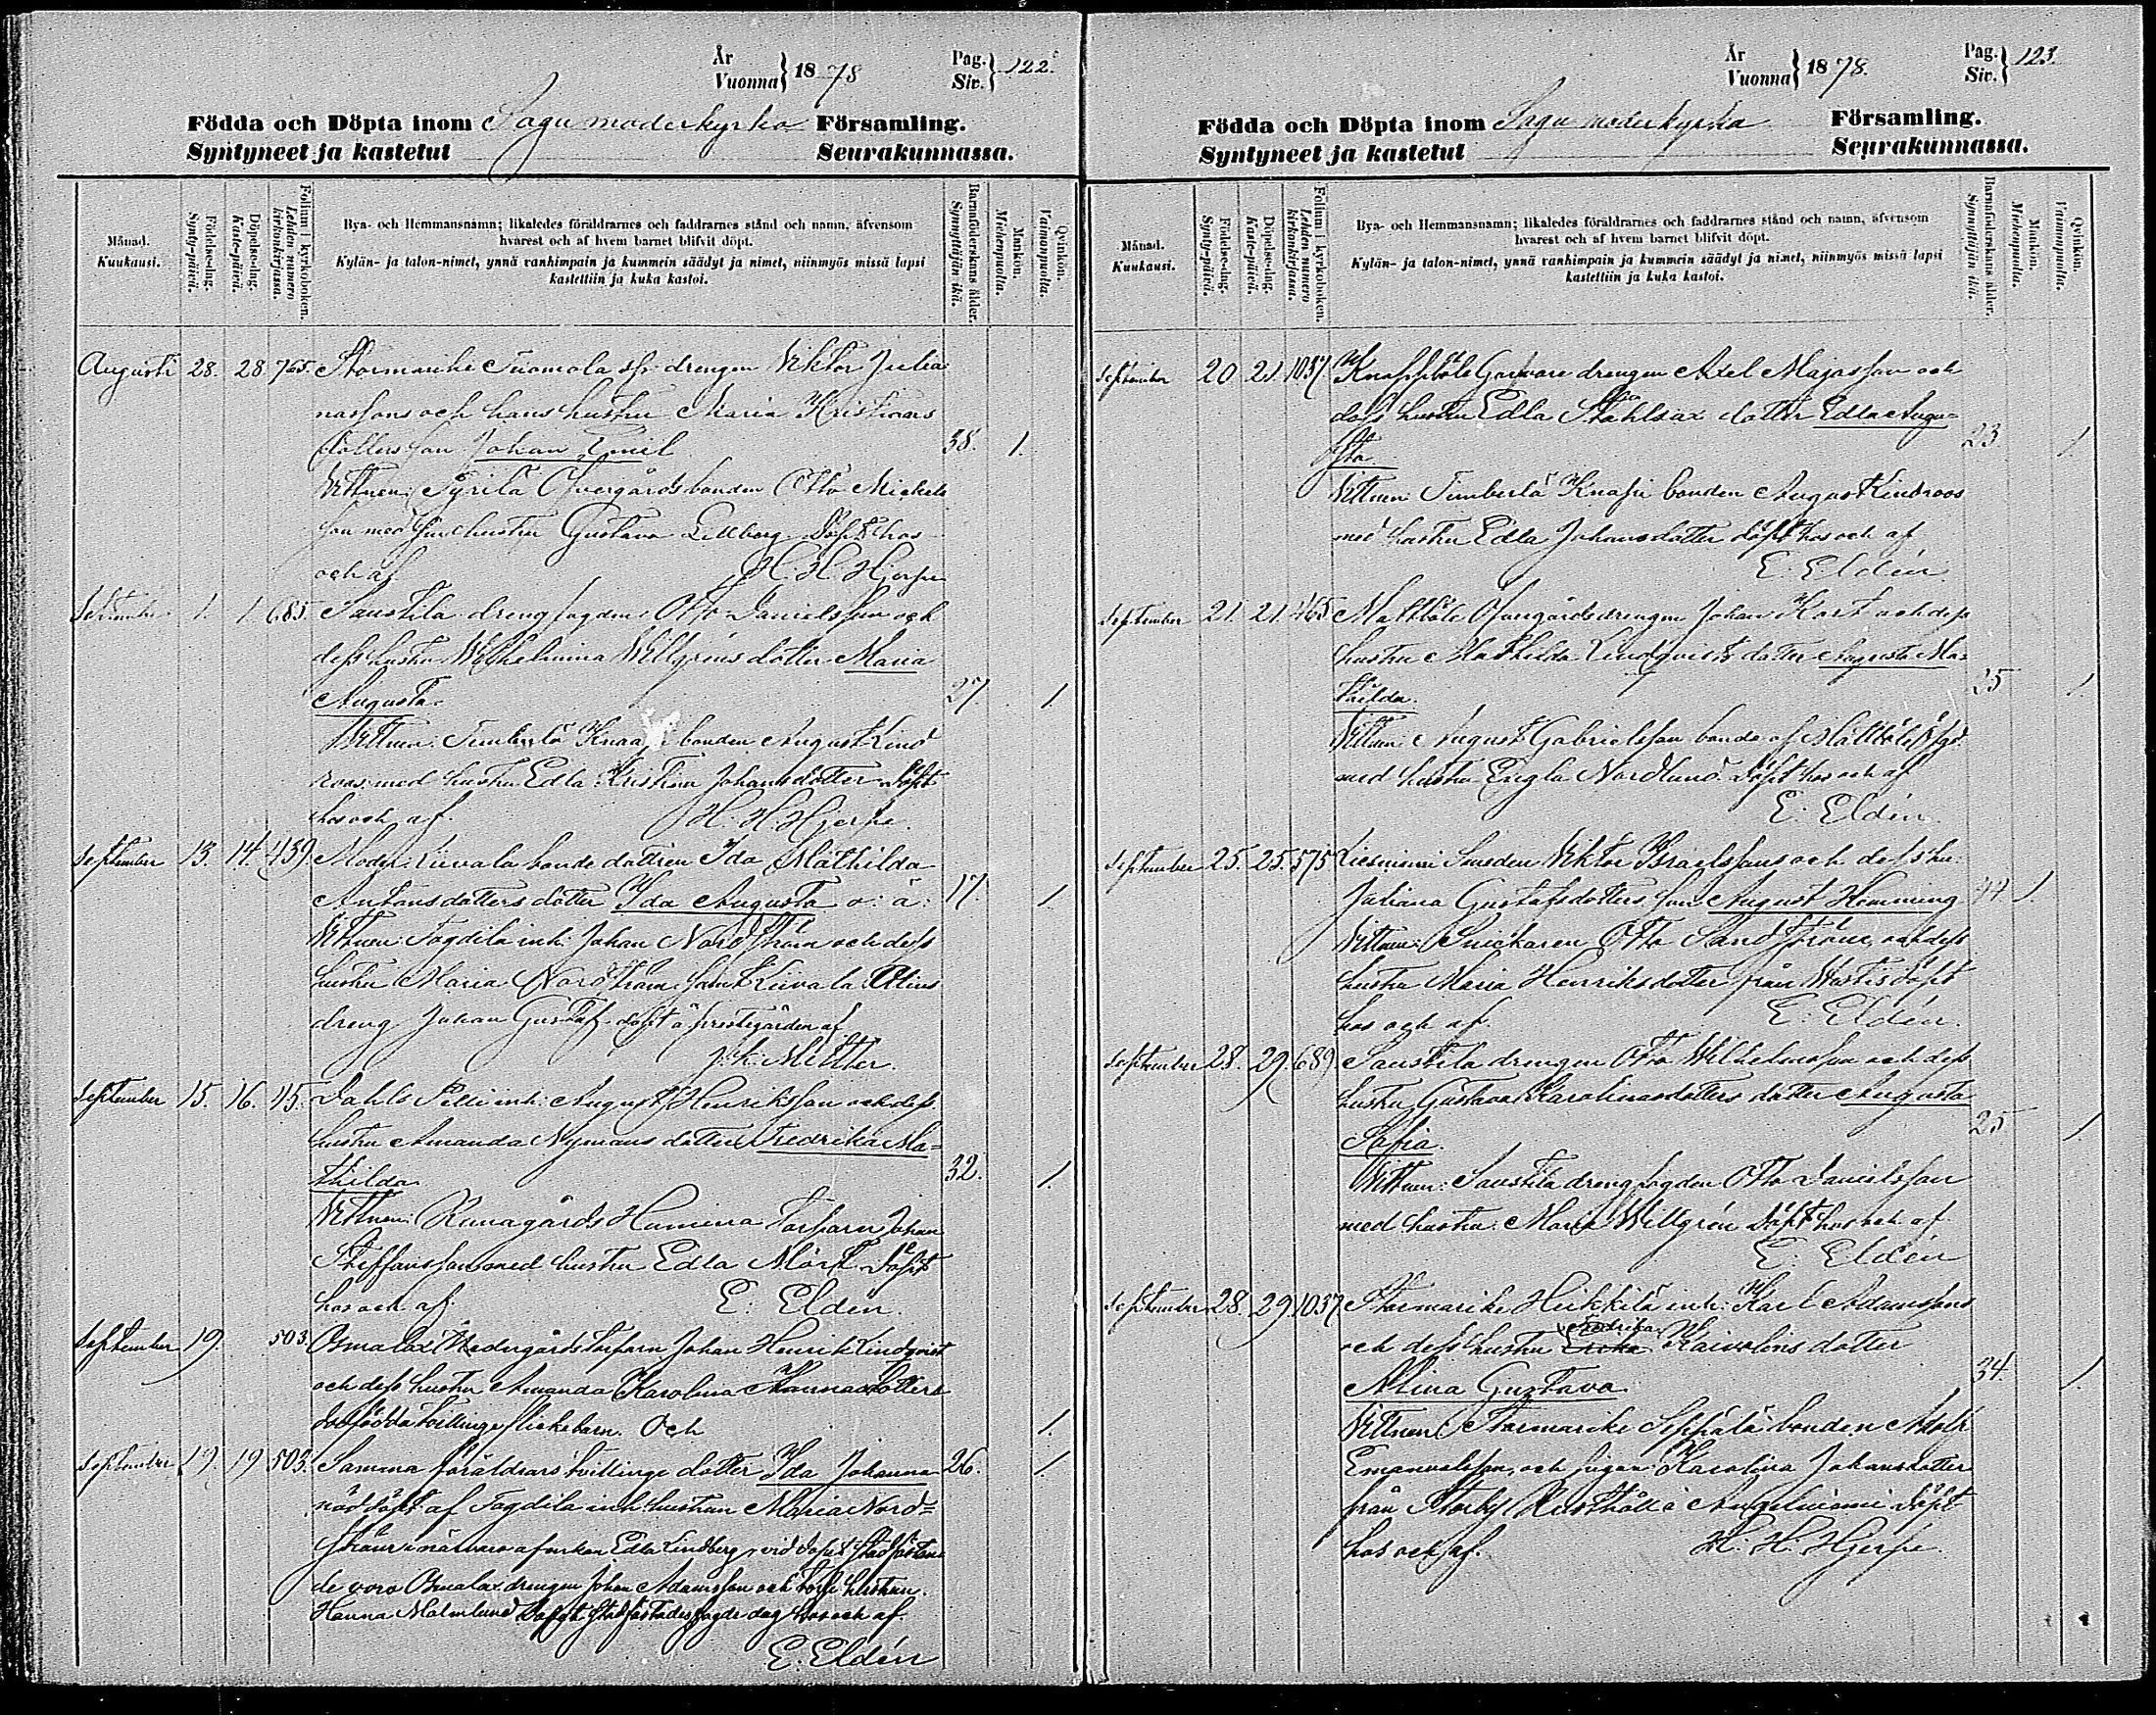 År
Vuonna } 1878
Pag.
Siv. } 122.
Födda och Döpta inom Sagu moderkyrka Församling.
Syntyneet ja kastetut Seurakunnassa.
Månad.
Kuukausi.
Födelse-dag.
Synty-päivä.
Döpelse-dag.
Kaste-päivä.
Folium i kyrkoboken.
Lehden numero kirkonkirjassa.
Bya- och Hemmansnamn; likaledes föräldrarnes och faddrarnes stånd och namn, äfvensom
hvarest och af hvem barnet blifvit döpt.
Kylän- ja talon-nimet, ynnä vanhimpain ja kummein säädyt ja nimet, niinmyös missä lapsi
kastettiin ja kuka kastoi.
Barnaföderskans ålder.
Synnyttäjän ikä.
Mankön.
Miehenpuolta.
Qvinkön.
Vaimonpuolta.
Augusti 28. 28 765. Stormarike Tuomola drengen Viktor Julia
nassons och hans hustru Maria Kristinas
dotters son Johan Emil 38. 1.
Vittnen: Syrilä Öfvergårds bonden Otto Mickels
son med hustru Gustava Lillberg Döpt hos
och af H. H. Hjerpe
September 1. 1. 685. Saustila drengfogden Otto Danielsson och
dess hustru Wilhelmina Willgréns dotter Maria
Augusta. 27. 1.
Vittnen: Timberlä Knaapi bonden August Lind
roos med hustru Edla Kristina Johansdotter Döpt
hos och af. H. H. Hjerpe.
September 13. 14. 439. Moden Liivala bonde dottren Ida Mathilda
Antonsdotters dotter Ida Augusta o: ä: 17. 1
Vittnen: Tagdila inh: Johan Nordström och dess
hustru Maria Nordström samt Liivala
dreng Johan Gustaf döpt å prestegården af
September 15. 16. 45. Dahls Pelli inh: August Henriksson och dess
hustru Amanda Nymans dotter Fredrika Ma=
thilda. 32. 1.
Vittnen: Runagårds Hamina Torparn Johan
Steffansson med hustru Edla Mörk Döpt
hos och af. E. Eldén.
September 19. 503. Osmalax Nedergårds torparn Johan Henrik Lindqvist
och dess hustru Amanda Karolina Hannasdotters
dödfödda tvillinge flickebarn. Och 1.
September 19. 19 503. Samma föräldrars tvillinge dotter Ida Johanna 26. 1.
nöddöpt af Tagdila inh. hustrun Maria Nord=
ström i närvaro af enkan Edla Lindberg, vid dopet stadfästan
de voro Osmalax drengen Johan Adamsson och torp: hustrun
Hanna Malmlund Dopet stadfästades sagde dag hos och af.
E. Eldén
År
Vuonna } 1878.
Pag.
Siv. } 123.
Födda och Döpta inom Sagu moderkyrka Församling.
Syntyneet ja kastetut Seurakunnassa.
Månad.
Kuukausi.
Födelse-dag.
Synty-päivä.
Döpelse-dag.
Kaste-päivä.
Folium i kyrkoboken.
Lehden numero kirkonkirjassa.
Bya- och Hemmansnamn; likaledes föräldrarnes och faddrarnes stånd och namn, äfvensom
hvarest och af hvem barnet blifvit döpt.
Kylän- ja talon-nimet, ynnä vanhimpain ja kummein säädyt ja nimet, niinmyös missä lapsi
kastettiin ja kuka kastoi.
Barnaföderskans ålder.
Synnyttäjän ikä.
Mankön.
Miehenpuolta.
Qvinkön.
Vaimonpuolta.
September 20 21. 1037 Knapböle Garfvare drengen Axel Majasson och
dess hustru Edla Ståhlsax dotter Edla Augu=
sta. 23 1
Vittnen Timberlä Knapi bonden August Lindroos
med hustru Edla Johansdotter döpt hos och af
E. Eldén.
September 21. 21. 465 Mattböle Ofvangårds drengen Johan Kort och dess
hustru Mathilda Lindqvists dotter Augusta Ma=
thilda. 25 1.
Vittnen: August Gabrielsson bonde af Mattböle
med hustru Engla Nordlund. Döpt hos och af
E. Eldén.
September 25. 25. 575 Liesniemi Smeden Viktor Israelssons och dess hu:
Juliana Gustafsdotters son August Hemming 44 1.
Vittnen: Snickaren Otto Sandström, och dess
hustru Maria Henriksdotter från Wartis döpt
hos och af. E. Eldén.
September 28. 29. 689. Saustila drengen Otto Wilhelmsson och dess
hustru Gustava Karolinasdotters dotter Augusta
Sofia. 25 1.
Vittnen: Saustila drengfogden Otto Danielsson
med hustru Maria Willgrén Döpt hos och af
E. Eldén
September 28. 29. 1037 Stormarike Heikkilä inh: Karl Adamssons
och dess hustru Fredrika Kaivolins dotter
Alina Gustava 34. 1.
Vittnen Stormarike Seppälä bonden Adolf
Emanuelsson, och pigan Karolina Johansdotter
från Storby Rusthåll i Angelniemi Döpt
hos och af. H. H. Hjerpe.